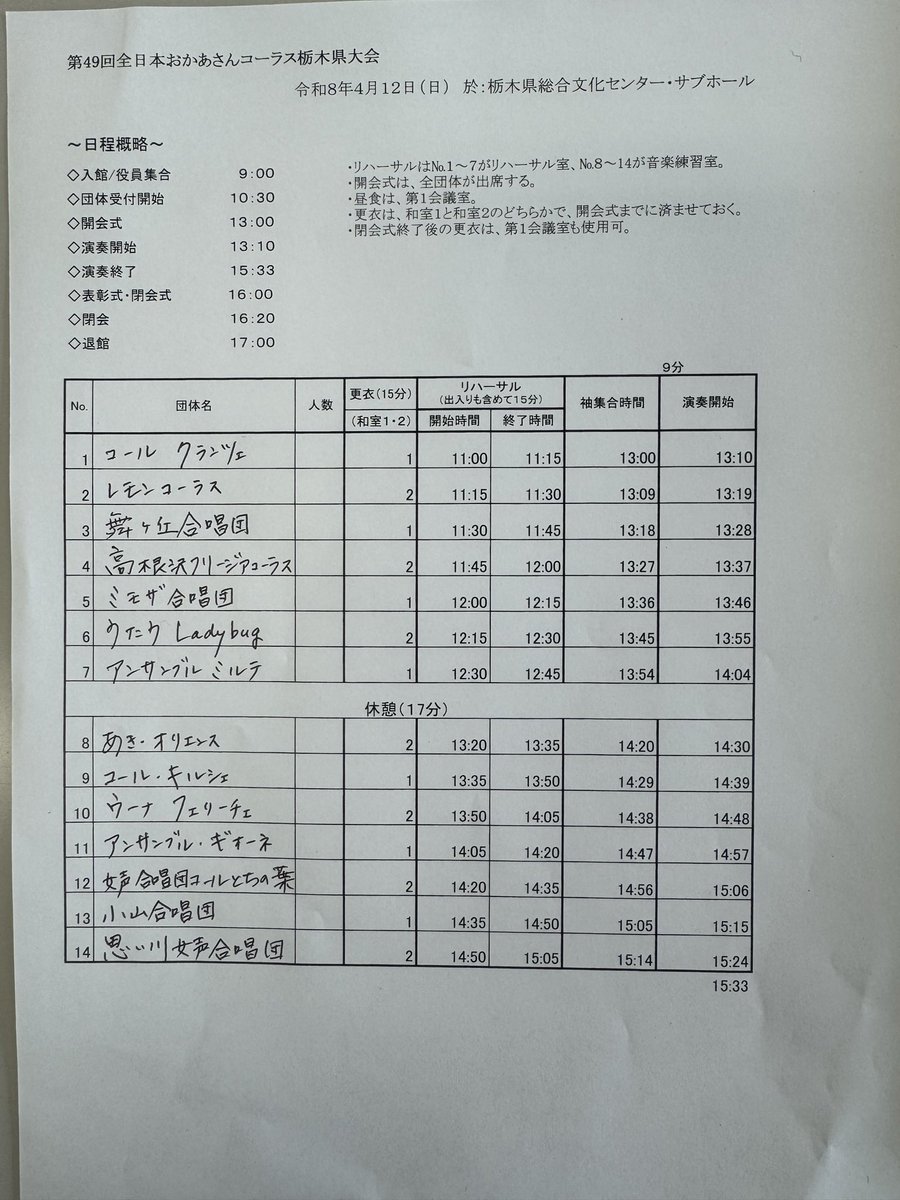 第49回全日本おかあさんコーラス栃木県大会
令和8年4月12日(日) 於:栃木県総合文化センター・サブホール
～日程概略～
◇入館/役員集合 9:00
◇団体受付開始 10:30
◇開会式 13:00
◇演奏開始 13:10
◇演奏終了 15:33
◇表彰式・閉会式 16:00
◇閉会 16:20
◇退館 17:00
・リハーサルは№1～7がリハーサル室、№8～14が音楽練習室。
・開会式は、全団体が出席する。
・昼食は、第1会議室。
・更衣は、和室1と和室2のどちらかで、開会式までに済ませておく。
・閉会式終了後の更衣は、第1会議室も使用可。
9分
No. 団体名 人数 更衣(15分) (和室1・2) リハーサル (出入りも含めて15分) 開始時間 終了時間 袖集合時間 演奏開始
1 コール クランツェ 1 11:00 11:15 13:00 13:10
2 レモンコーラス 2 11:15 11:30 13:09 13:19
3 舞ヶ丘合唱団 1 11:30 11:45 13:18 13:28
4 高根沢フリージアコーラス 2 11:45 12:00 13:27 13:37
5 ミモザ合唱団 1 12:00 12:15 13:36 13:46
6 うたう Ladybug 2 12:15 12:30 13:45 13:55
7 アンサンブル ミルテ 1 12:30 12:45 13:54 14:04
休憩(17分)
8 あき・オリエンス 2 13:20 13:35 14:20 14:30
9 コール・キルシェ 1 13:35 13:50 14:29 14:39
10 ウーナ フェリーチェ 2 13:50 14:05 14:38 14:48
11 アンサンブル・ギオーネ 1 14:05 14:20 14:47 14:57
12 女声合唱団コールとちの葉 2 14:20 14:35 14:56 15:06
13 小山合唱団 1 14:35 14:50 15:05 15:15
14 思い川女声合唱団 2 14:50 15:05 15:14 15:24
15:33